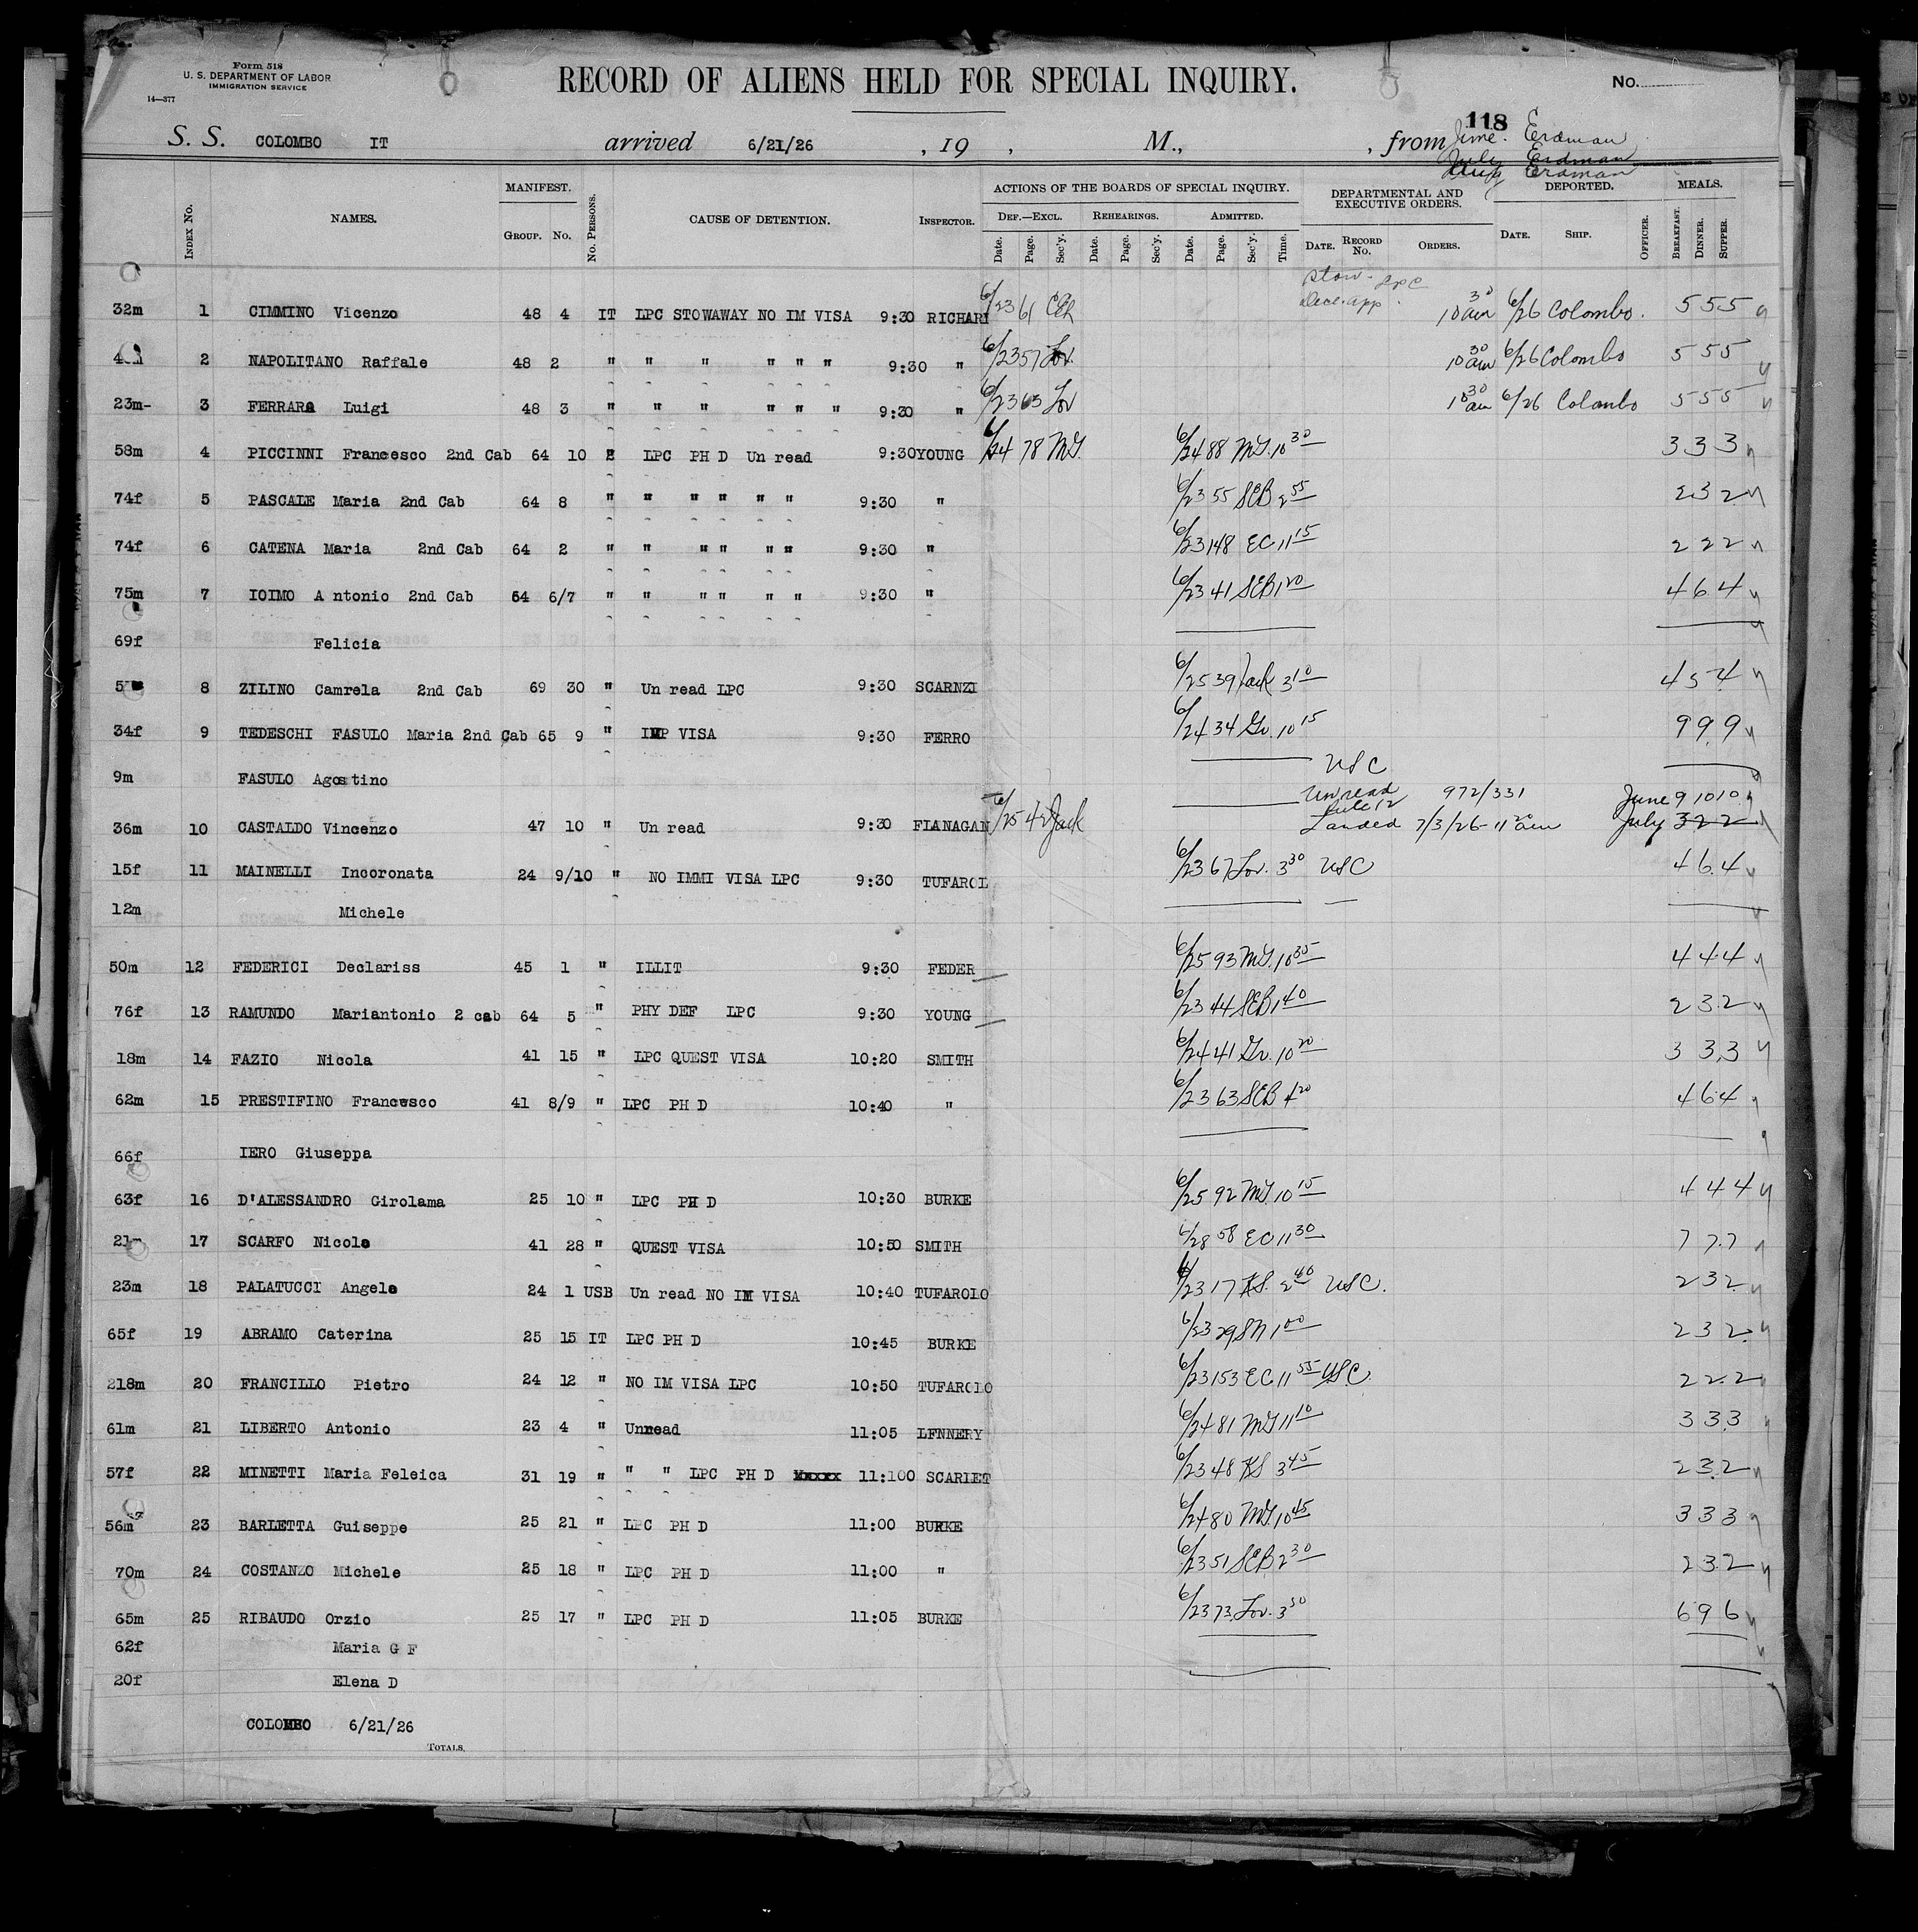 Form 518
U. S. DEPARTMENT OF LABOR
IMMIGRATION SERVICE
14—377
RECORD OF ALIENS HELD FOR SPECIAL INQUIRY.
No.
118
S. S. COLOMBO IT arrived 6/21/26 , 19 , M., , from June Erdman
July Erdman
Aug Erdman
INDEX No. NAMES. MANIFEST. GROUP. No. No. PERSONS. CAUSE OF DETENTION. INSPECTOR. ACTIONS OF THE BOARDS OF SPECIAL INQUIRY. DEF.—EXCL. REHEARINGS. ADMITTED. Date. Page. Sec'y. Date. Page. Sec'y. Date. Page. Sec'y. Time. DEPARTMENTAL AND EXECUTIVE ORDERS. DATE. RECORD No. ORDERS. DEPORTED. DATE. SHIP. OFFICER. MEALS. BREAKFAST. DINNER. SUPPER.
Stow- LPC
Dec. app.
32m 1 CIMMINO Vicenzo 48 4 IT LPC STOWAWAY NO IM VISA 9:30 RICHARD 6/23 61 10 30 am 6/26 Colombo. 5 5 5
2 NAPOLITANO Raffale 48 2 " " " " " " 9:30 " 6/23 57 Lov. 10 30 am 6/26 Colombo 5 5 5
23m- 3 FERRARA Luigi 48 3 " " " " " " 9:30 " 6/23 63 Lov 10 30 am 6/26 Colombo 5 5 5
58m 4 PICCINNI Francesco 2nd Cab 64 10 LPC PH D Un read 9:30 YOUNG 6/24 78 MG. 6/24 88 MG. 10 30 3 3 3
74f 5 PASCALE Maria 2nd Cab 64 8 " " " " " " 9:30 " 6/23 55 SEB 2 55 2 3 2
74f 6 CATENA Maria 2nd Cab 64 2 " " " " " " 9:30 " 6/23 148 EC 11 15 2 2 2
75m 7 IOIMO Antonio 2nd Cab 64 6/7 " " " " " " 9:30 " 6/23 41 SEB 1 20 4 6 4
69f Felicia
8 ZILINO Camrela 2nd Cab 69 30 " Un read LPC 9:30 SCARNZI 6/25 39 Jack 3 10 4 5 4
34f 9 TEDESCHI FASULO Maria 2nd Cab 65 9 " IMP VISA 9:30 FERRO 6/24 34 Gr. 10 15 9 9 9
9m FASULO Agostino USC
Unread 972/331 June 9 10 10
Rule 12
36m 10 CASTALDO Vincenzo 47 10 " Un read 9:30 FLANAGAN 6/25 42 Jack Landed 7/3/26 - 11 am July 3 2 2
15f 11 MAINELLI Incoronata 24 9/10 " NO IMMI VISA LPC 9:30 TUFAROL 6/23 67 Lov. 3 30 USC 4 6 4
12m Michele
50m 12 FEDERICI Declariss 45 1 " ILLIT 9:30 FEDER 6/25 93 MG. 10 35 4 4 4
76f 13 RAMUNDO Mariantonio 2 cab 64 5 " PHY DEF LPC 9:30 YOUNG 6/23 44 SEB 1 40 2 3 2
18m 14 FAZIO Nicola 41 15 " LPC QUEST VISA 10:20 SMITH 6/24 41 Gr. 10 20 3 3 3
62m 15 PRESTIFINO Francesco 41 8/9 " LPC PH D 10:40 " 6/23 63 SEB 4 20 4 6 4
66f IERO Giuseppa
63f 16 D'ALESSANDRO Girolama 25 10 " LPC PH D 10:30 BURKE 6/25 92 MG. 10 15 4 4 4
17 SCARFO Nicolo 41 28 " QUEST VISA 10:50 SMITH 6/28 58 EC 11 30 7 7 7
23m 18 PALATUCCI Angelo 24 1 USB Un read NO IM VISA 10:40 TUFAROLO 6/23 17 KS. 2 40 USC. 2 3 2
65f 19 ABRAMO Caterina 25 15 IT LPC PH D 10:45 BURKE 6/23 29 SN 1 00 2 3 2
218m 20 FRANCILLO Pietro 24 12 " NO IM VISA LPC 10:50 TUFAROLO 6/23 153 EC 11 55 USC. 2 2 2
61m 21 LIBERTO Antonio 23 4 " Unread 11:05 LFNNERY 6/24 81 MG 11 10 3 3 3
57f 22 MINETTI Maria Feleica 31 19 " " " LPC PH D xxxxx 11:100 SCARLET 6/23 48 KS 3 45 2 3 2
56m 23 BARLETTA Guiseppe 25 21 " LPC PH D 11:00 BURKE 6/24 80 MG. 10 45 3 3 3
70m 24 COSTANZO Michele 25 18 " LPC PH D 11:00 " 6/23 51 SEB 2 30 2 3 2
65m 25 RIBAUDO Orzio 25 17 " LPC PH D 11:05 BURKE 6/23 73 Lov. 3 50 6 9 6
62f Maria G F
20f Elena D
COLOMBO 6/21/26
TOTALS,